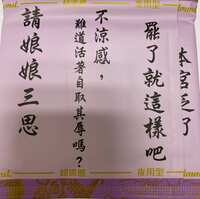 本宮乏了
罷了就這樣吧
不涼感，
難道活著自取其辱嗎？
請娘娘三思